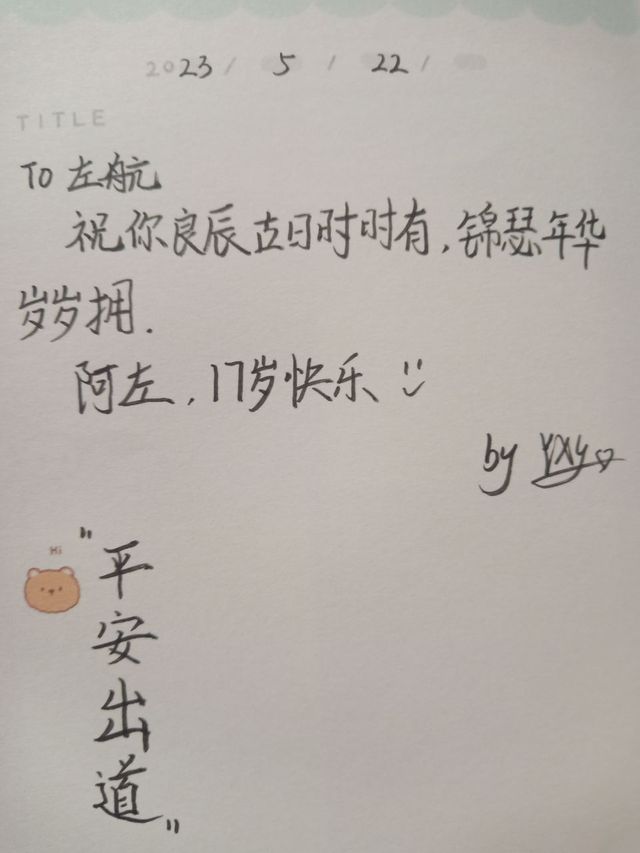 2023 / 5 / 22 /
TITLE
TO 左航
祝你良辰吉日时时有,锦瑟年华
岁岁拥.
阿左,17岁快乐 :)
by yxy♡
Hi
"平
安
出
道"